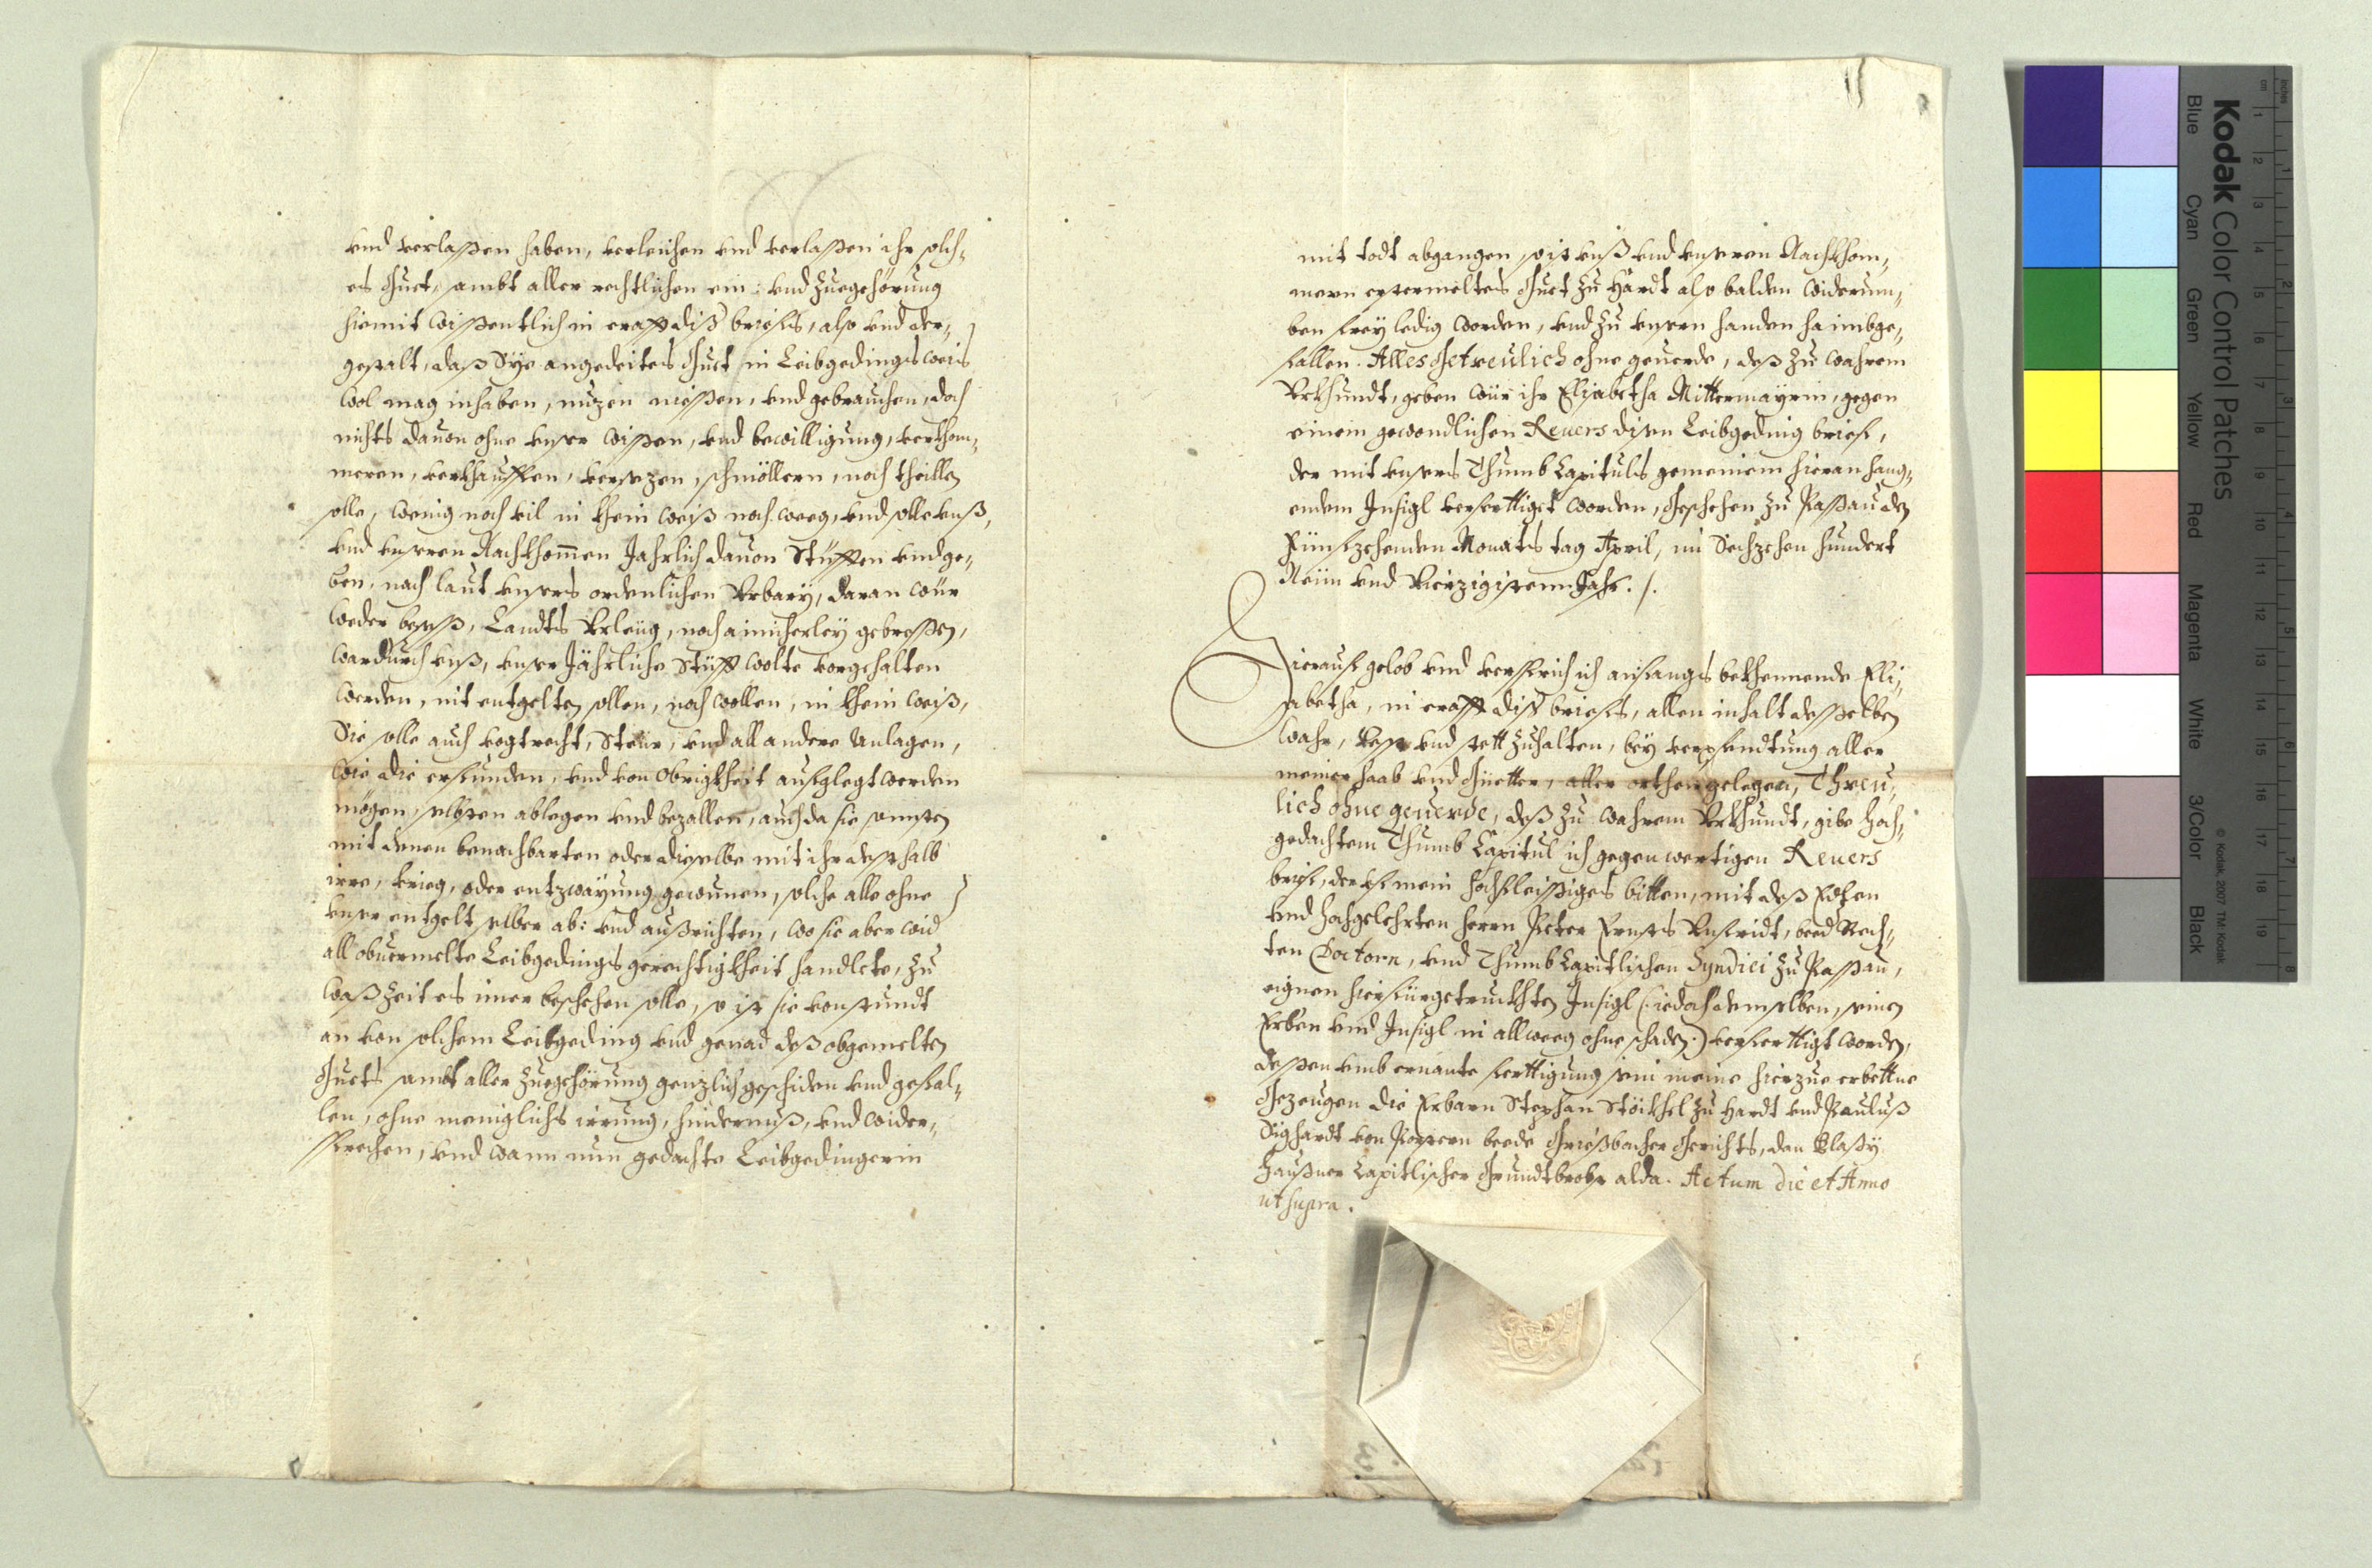 vnd verlaßen haben, verleichen vnd verlaßen ihr solch-
es Guet, sambt aller rechtlichen ein: vnd Zuegehörung
hiemit wißentlich in crafft diß brieffs, also vnd der-
gestalt, daß Sye angedeites Guet in Leibgedings weis
wol mag inhaben, nuzen niessen, vnd gebrauchen, doch
nichts dauon ohne vnser wißen, vnd bewilligung, verkhom-
meren, verkhauffen, versezen, schmöllern, noch theillen
solle, wenig noch vil in khein weiß noch weeg, vnd solle vnß,
vnd vnseren Nachkhommen Jahrlich dauon Stüfften vnd ge-
ben, nach laut vnsers ordenlichen Vrbary, daran wür
weder besuß, Landts Vrleüg, noch ainicherley gebresten,
wardurch vnß, vnser Jährliche Stüfft wolte vorgehalten
werden, nit entgelten sollen, noch wollen, in khein weiß,
Sie solle auch vogtrecht, Steur, vnd all andere Anlagen,
wie die erfunden, vnd von Obrigkheit aufglegt werden
mögen, selbsten ablegen vnd bezallen, auch da sie sonsten
mit denen benachbarten oder dieselbe mit ihr desthalb
irre, krieg, oder entzwayung gewunen, solche alle ohne
vnser entgelt selber ab: vnd außrichten, wo sie aber wid
all obuermelte Leibgedings gerechtigkheit handlete, zu
waß Zeit es imer beschehen solle, so ist sie von stundt
an von solchem Leibgeding vnd genad deß obgemelten
Guets sambt aller Zuegehörung genzlich geschiden vnd gefal-
len, ohne meniglichs irrung, hindernuß, vnd wider-
sprechen, vnd wann nun gedachte Leibgedingerin
mit todt abgangen, so ist vnß vnd vnseren Nachkhom-
mern ersermeltes Guet zu Hardt also balden widerum-
ben frey ledig worden, vnd zu vnsern handen haimbge-
fallen. Alles Getreulich ohne geuerde, deß zu wahrem
Vrkhundt, geben wür ihr Elisabetha Mittermayrin, gegen
einem gewondlichen Reuers disen Leibgeding brief,
der mit vnsers Thumb Capituls gemeinem hieran hang-
endem Insigl verferttiget worden, Geschehen zu Passau den
Fünfzehenden Monats tag April, im Sechzehen hundert
Neün vnd Vierzigistem Jahr. /.
Hierauf gelob vnd versprich ich anfangs bekhennende Eli-
sabetha, in crafft diß briefs, allen inhalt desselben
wahr, Vest vnd stett zuhalten, bey verpfendtung aller
meiner haab vnd Güetter, aller orthen gelegen, Threu-
lich ohne geuerde, deß zu wahrem Vrkhundt, gibe hoch-
gedachtem Thumb Capitul ich gegenwertigen Reuers
brief, der vf mein hochfleissiges bitten, mit deß Edlen
vnd hochgelehrten herrn Peter Ernsts Vnfridt, beed Rech-
ten Doctorn, vnd Thumb Capitlischen Syndici zu Passau,
eignem hierfürgetruckhten Insigl (: iedoch demselben, seinen
Erben vnd Insigl in allweeg ohne schaden :) verferttigt worden,
dessen vmb ernante ferttigung sein meine hierzue erbettne
Gezeugen die Erbarn Stephan Stöikhel zu Hardt vnd Pauluß
Sighardt von Postern beede Grießbacher Gerichts, dan Blasy
Haußner Capitlischer Grundtbrobst alda. Actum die et Anno
ut supra.